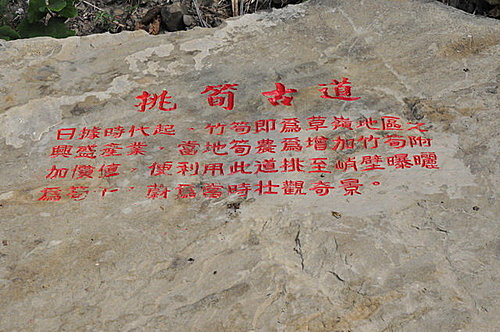 挑筍古道
日據時代起，竹筍即為草嶺地區之
興盛產業，當地筍農為增加竹筍附
加價值，便利用此道挑至峭壁曝曬
為筍干，蔚為當時壯觀奇景。